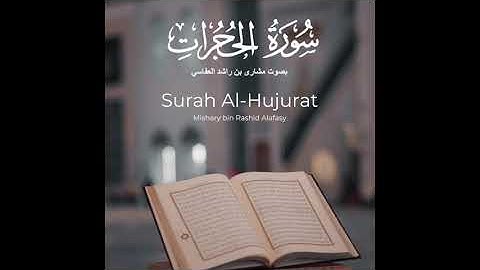 سُورَةُ الحُجُرَاتِ
بصوت مشاري بن راشد العفاسي
Surah Al-Hujurat
Mishary bin Rashid Alafasy